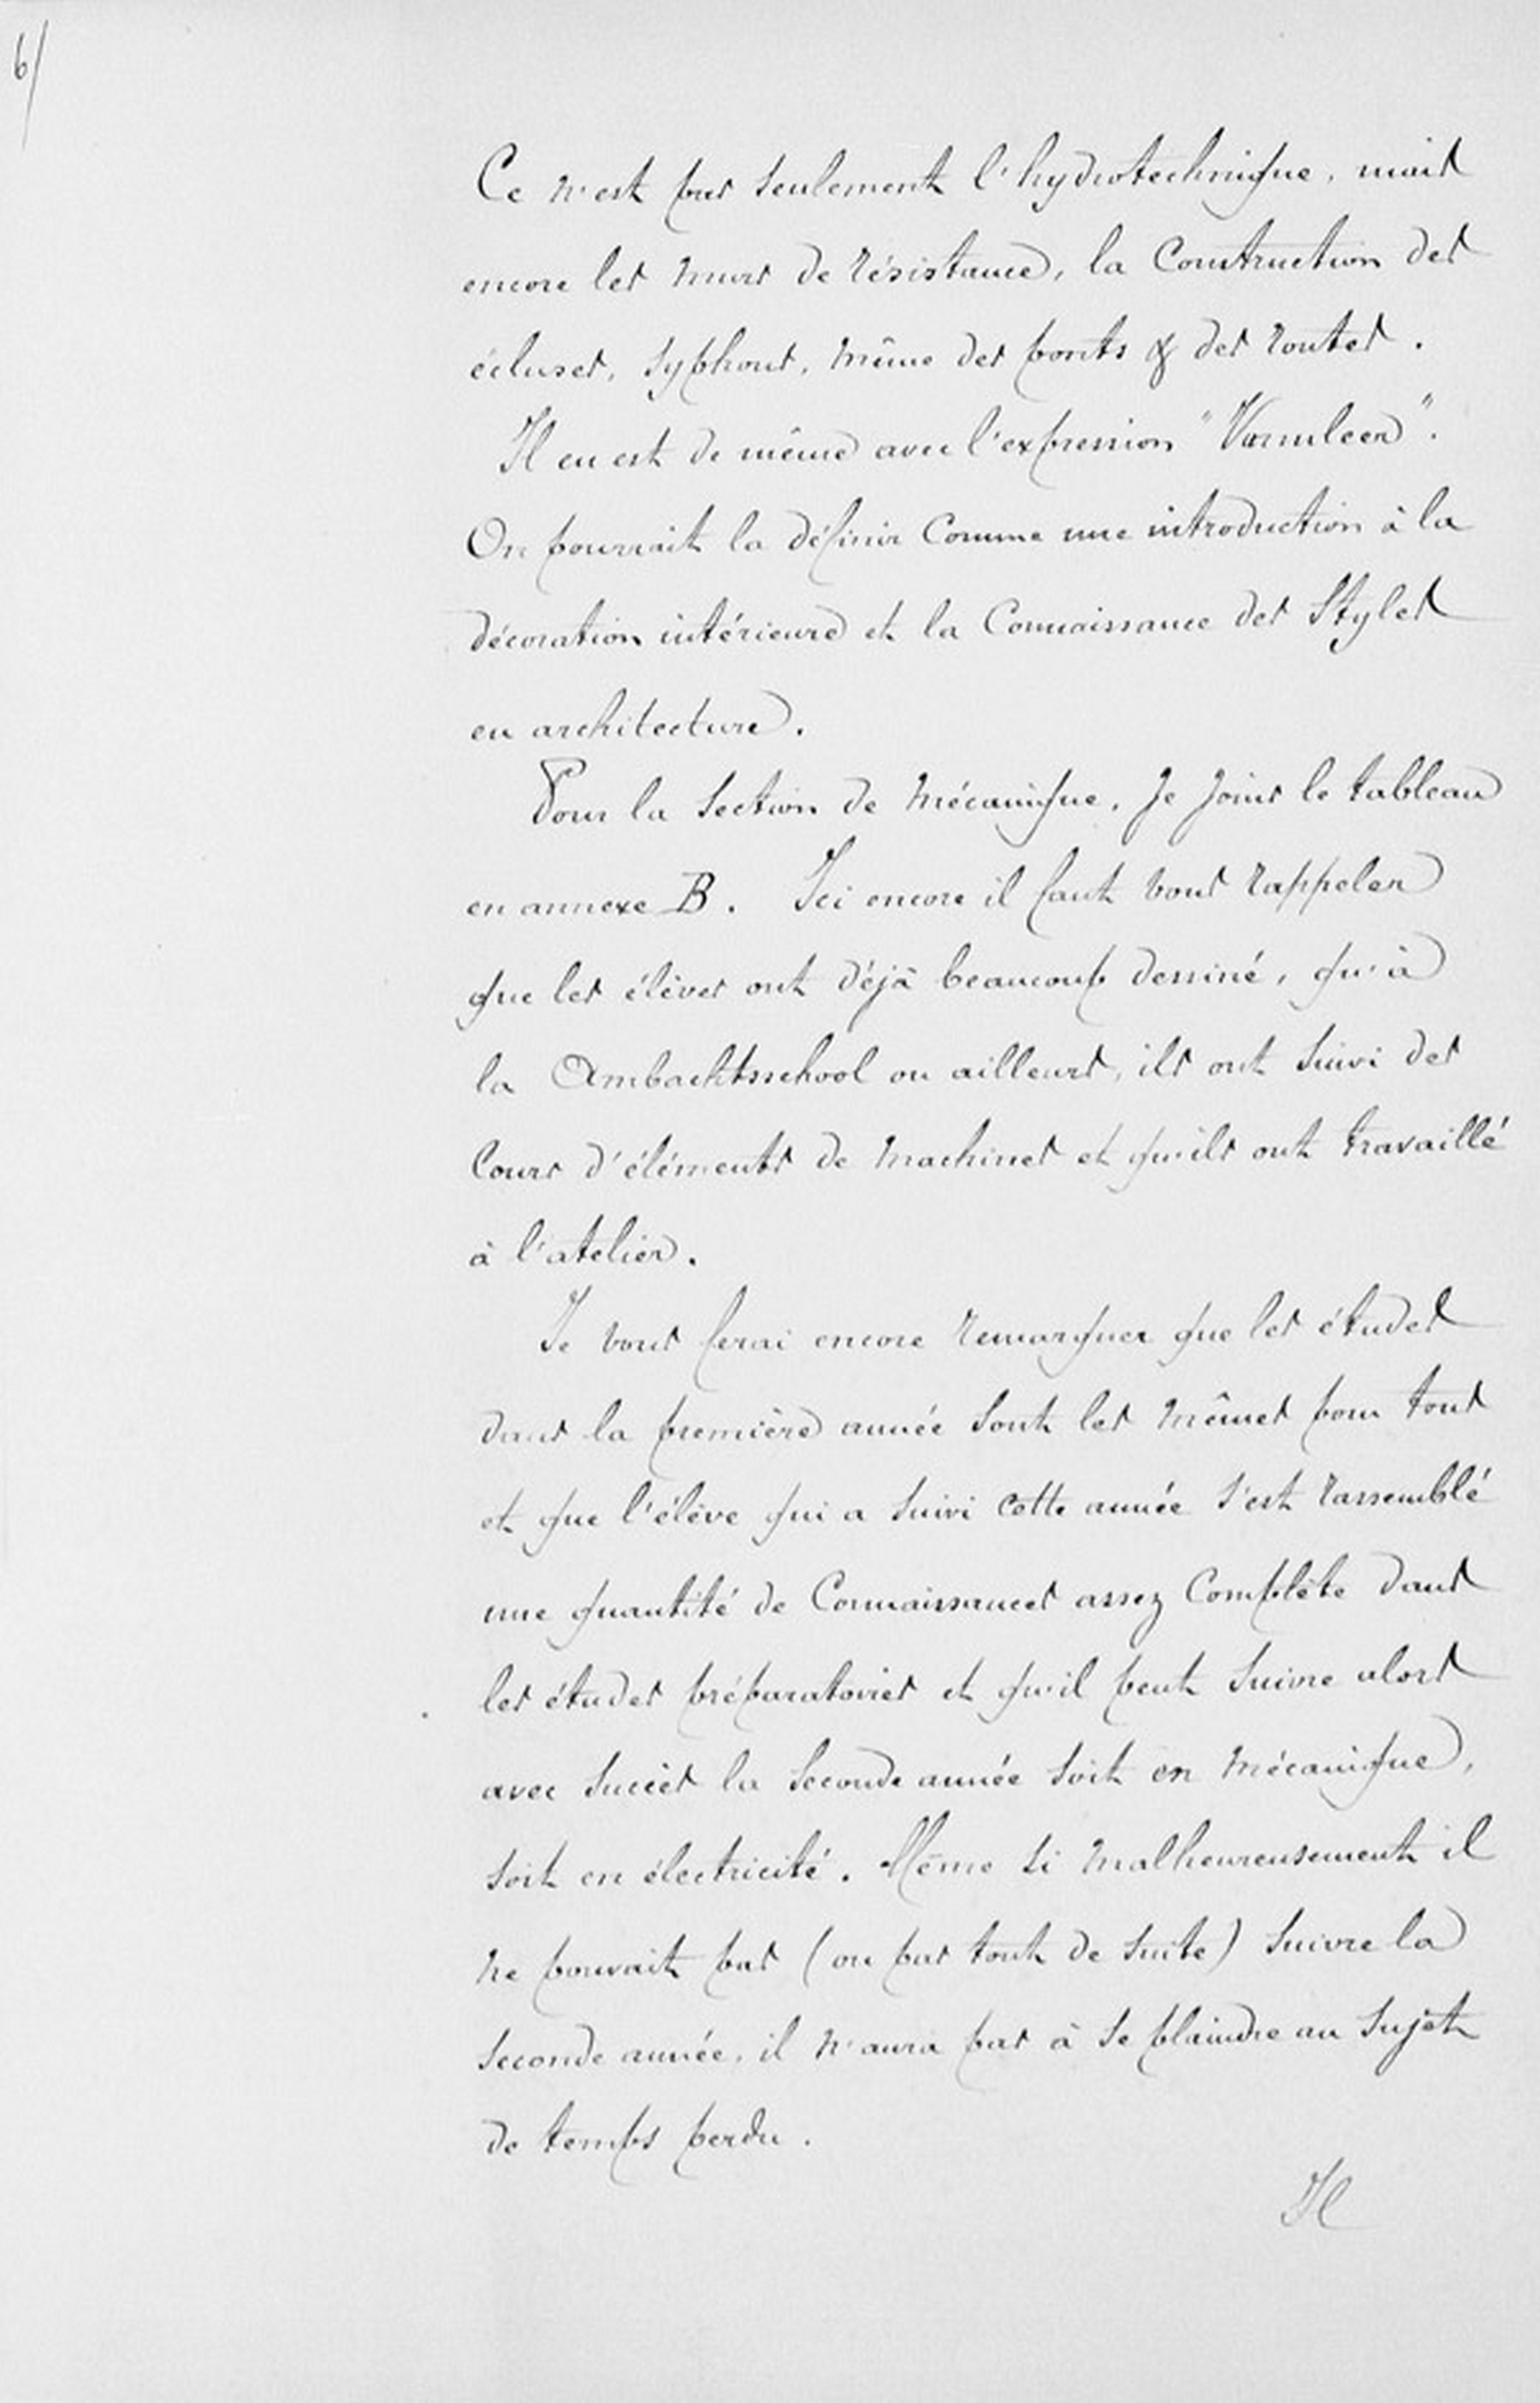 6/
Ce n'est pas seulement l'hydrotechnique, mais
encore les murs de résistance, la Construction des
écluses, syphons, même des ponts & des routes.
Il en est de même avec l'expression "Vormleer".
On pourrait la définir comme une introduction à la
décoration intérieure et la Connaissance des Styles
en architecture.
Pour la Section de Mécanique, Je Joins le tableau
en annexe B. Ici encore il faut vous rappeler
que les élèves ont déjà beaucoup dessiné, qu'à
la Ambachtsschool ou ailleurs, ils ont suivi des
Cours d'éléments de Machines et qu'ils ont travaillé
à l'atelier.
Je vous ferai encore remarquer que les études
dans la première année sont les mêmes pour tous
et que l'élève qui a suivi cette année s'est rassemblé
une quantité de Connaissances assez Complète dans
les études préparatoires et qu'il peut suivre alors
avec succès la seconde année soit en Mécanique,
soit en électricité. Même si malheureusement il
ne pouvait pas (ou pas tout de suite) suivre la
seconde année, il n'aura pas à se plaindre au sujet
de temps perdu.
Il